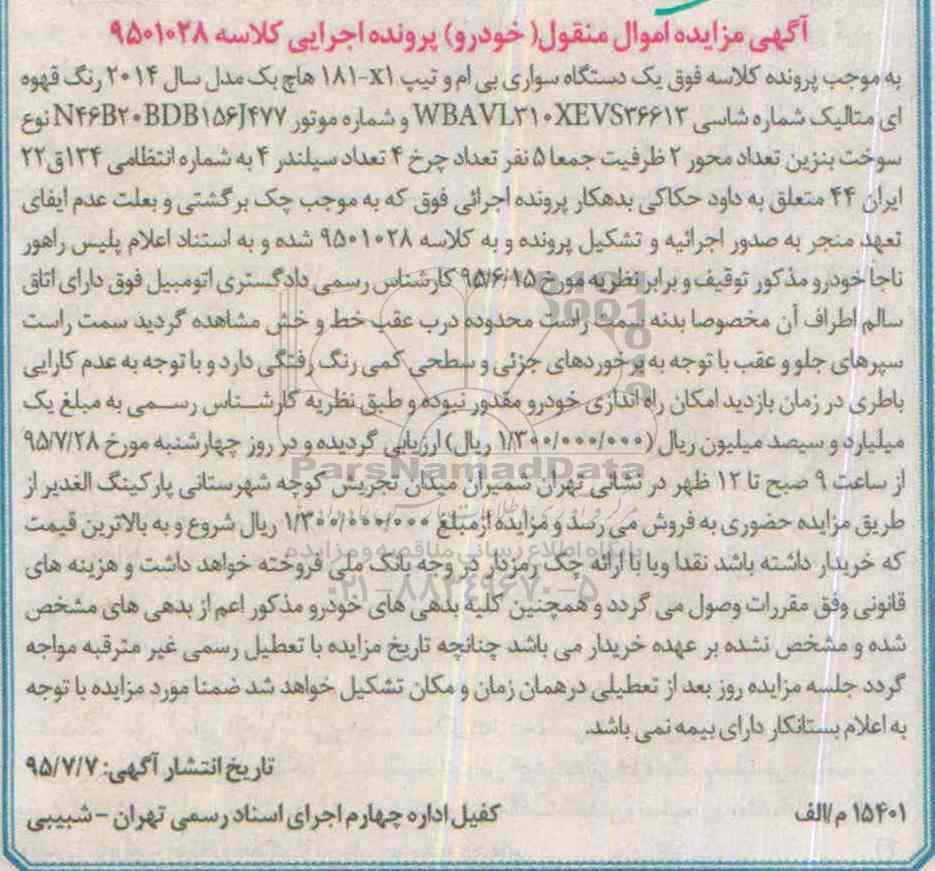 آگهی مزایده اموال منقول( خودرو) پرونده اجرایی کلاسه ۹۵۰۱۰۲۸
به موجب پرونده کلاسه فوق یک دستگاه سواری بی ام و تیپ X۱-۱۸i هاچ بک مدل سال ۲۰۱۴ رنگ قهوه
ای متالیک شماره شاسی WBAVL۳۱۰XEVS۳۶۶۱۳ و شماره موتور N۴۶B۲۰BDB۱۵۶J۴۷۷ نوع
سوخت بنزین تعداد محور ۲ ظرفیت جمعا ۵ نفر تعداد چرخ ۴ تعداد سیلندر ۴ به شماره انتظامی ۱۳۴ق۲۲
ایران ۴۴ متعلق به داود حکاکی بدهکار پرونده اجرائی فوق که به موجب چک برگشتی و بعلت عدم ایفای
تعهد منجر به صدور اجرائیه و تشکیل پرونده و به کلاسه ۹۵۰۱۰۲۸ شده و به استناد اعلام پلیس راهور
ناجا خودرو مذکور توقیف و برابر نظریه مورخ ۹۵/۶/۱۵ کارشناس رسمی دادگستری اتومبیل فوق دارای اتاق
سالم اطراف آن مخصوصا بدنه سمت راست محدوده درب عقب خط و خش مشاهده گردید سمت راست
سپرهای جلو و عقب با توجه به برخوردهای جزئی و سطحی کمی رنگ رفتگی دارد و با توجه به عدم کارایی
باطری در زمان بازدید امکان راه اندازی خودرو مقدور نبوده و طبق نظریه کارشناس رسمی به مبلغ یک
میلیارد و سیصد میلیون ریال (۱/۳۰۰/۰۰۰/۰۰۰ ریال) ارزیابی گردیده و در روز چهارشنبه مورخ ۹۵/۷/۲۸
از ساعت ۹ صبح تا ۱۲ ظهر در نشانی تهران شمیران میدان تجریش کوچه شهرستانی پارکینگ الغدیر از
طریق مزایده حضوری به فروش می رسد و مزایده از مبلغ ۱/۳۰۰/۰۰۰/۰۰۰ ریال شروع و به بالاترین قیمت
که خریدار داشته باشد نقدا ویا با ارائه چک رمزدار در وجه بانک ملی فروخته خواهد داشت و هزینه های
قانونی وفق مقررات وصول می گردد و همچنین کلیه بدهی های خودرو مذکور اعم از بدهی های مشخص
شده و مشخص نشده بر عهده خریدار می باشد چنانچه تاریخ مزایده با تعطیل رسمی غیر مترقبه مواجه
گردد جلسه مزایده روز بعد از تعطیلی درهمان زمان و مکان تشکیل خواهد شد ضمنا مورد مزایده با توجه
به اعلام بستانکار دارای بیمه نمی باشد.
تاریخ انتشار آگهی: ۹۵/۷/۷
۱۵۴۰۱ م/الف
کفیل اداره چهارم اجرای اسناد رسمی تهران - شبیبی
ParsNamadData
پایگاه اطلاع رسانی مناقصه و مزایده
۰۲۱-۸۸۳۴۹۶۷۰-۵